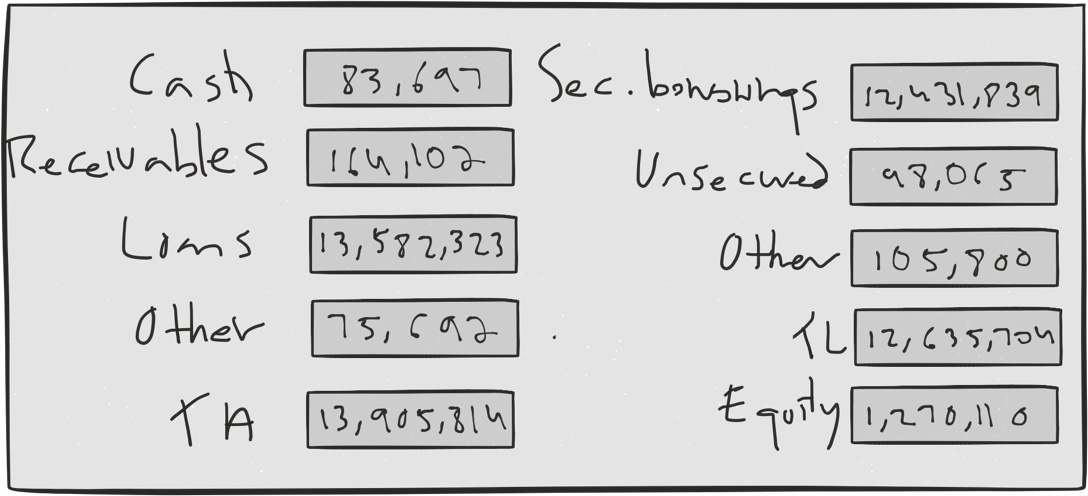 Cash 83,697
Receivables 164,102
Loans 13,582,323
Other 75,692
TA 13,905,814
Sec. borrowings 12,431,839
Unsecured 98,065
Other 105,800
TL 12,635,704
Equity 1,270,110